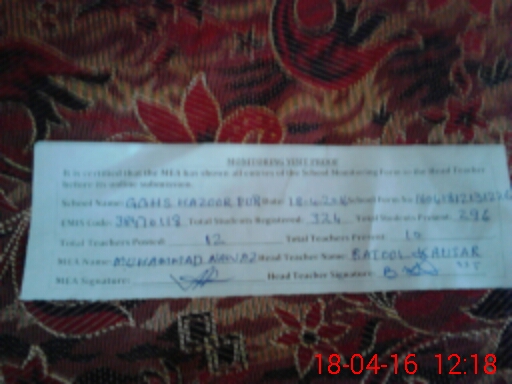 MONITORING VISIT PROOF
It is certified that the MEA has shown all entries of the School Monitoring Form to the Head Teacher
before its online submission.
School Name: GGHS HAZOOR PUR Date: 18-4-2016 School Form No:
EMIS Code: 38420118 Total Students Registered: 324 Total Students Present: 296
Total Teachers Posted: 12 Total Teachers Present: 10
MEA Name: MUHAMMAD NAWAZ Head Teacher Name: BATOOL KAUSAR
MEA Signature: Head Teacher Signature:
18-04-16 12:18